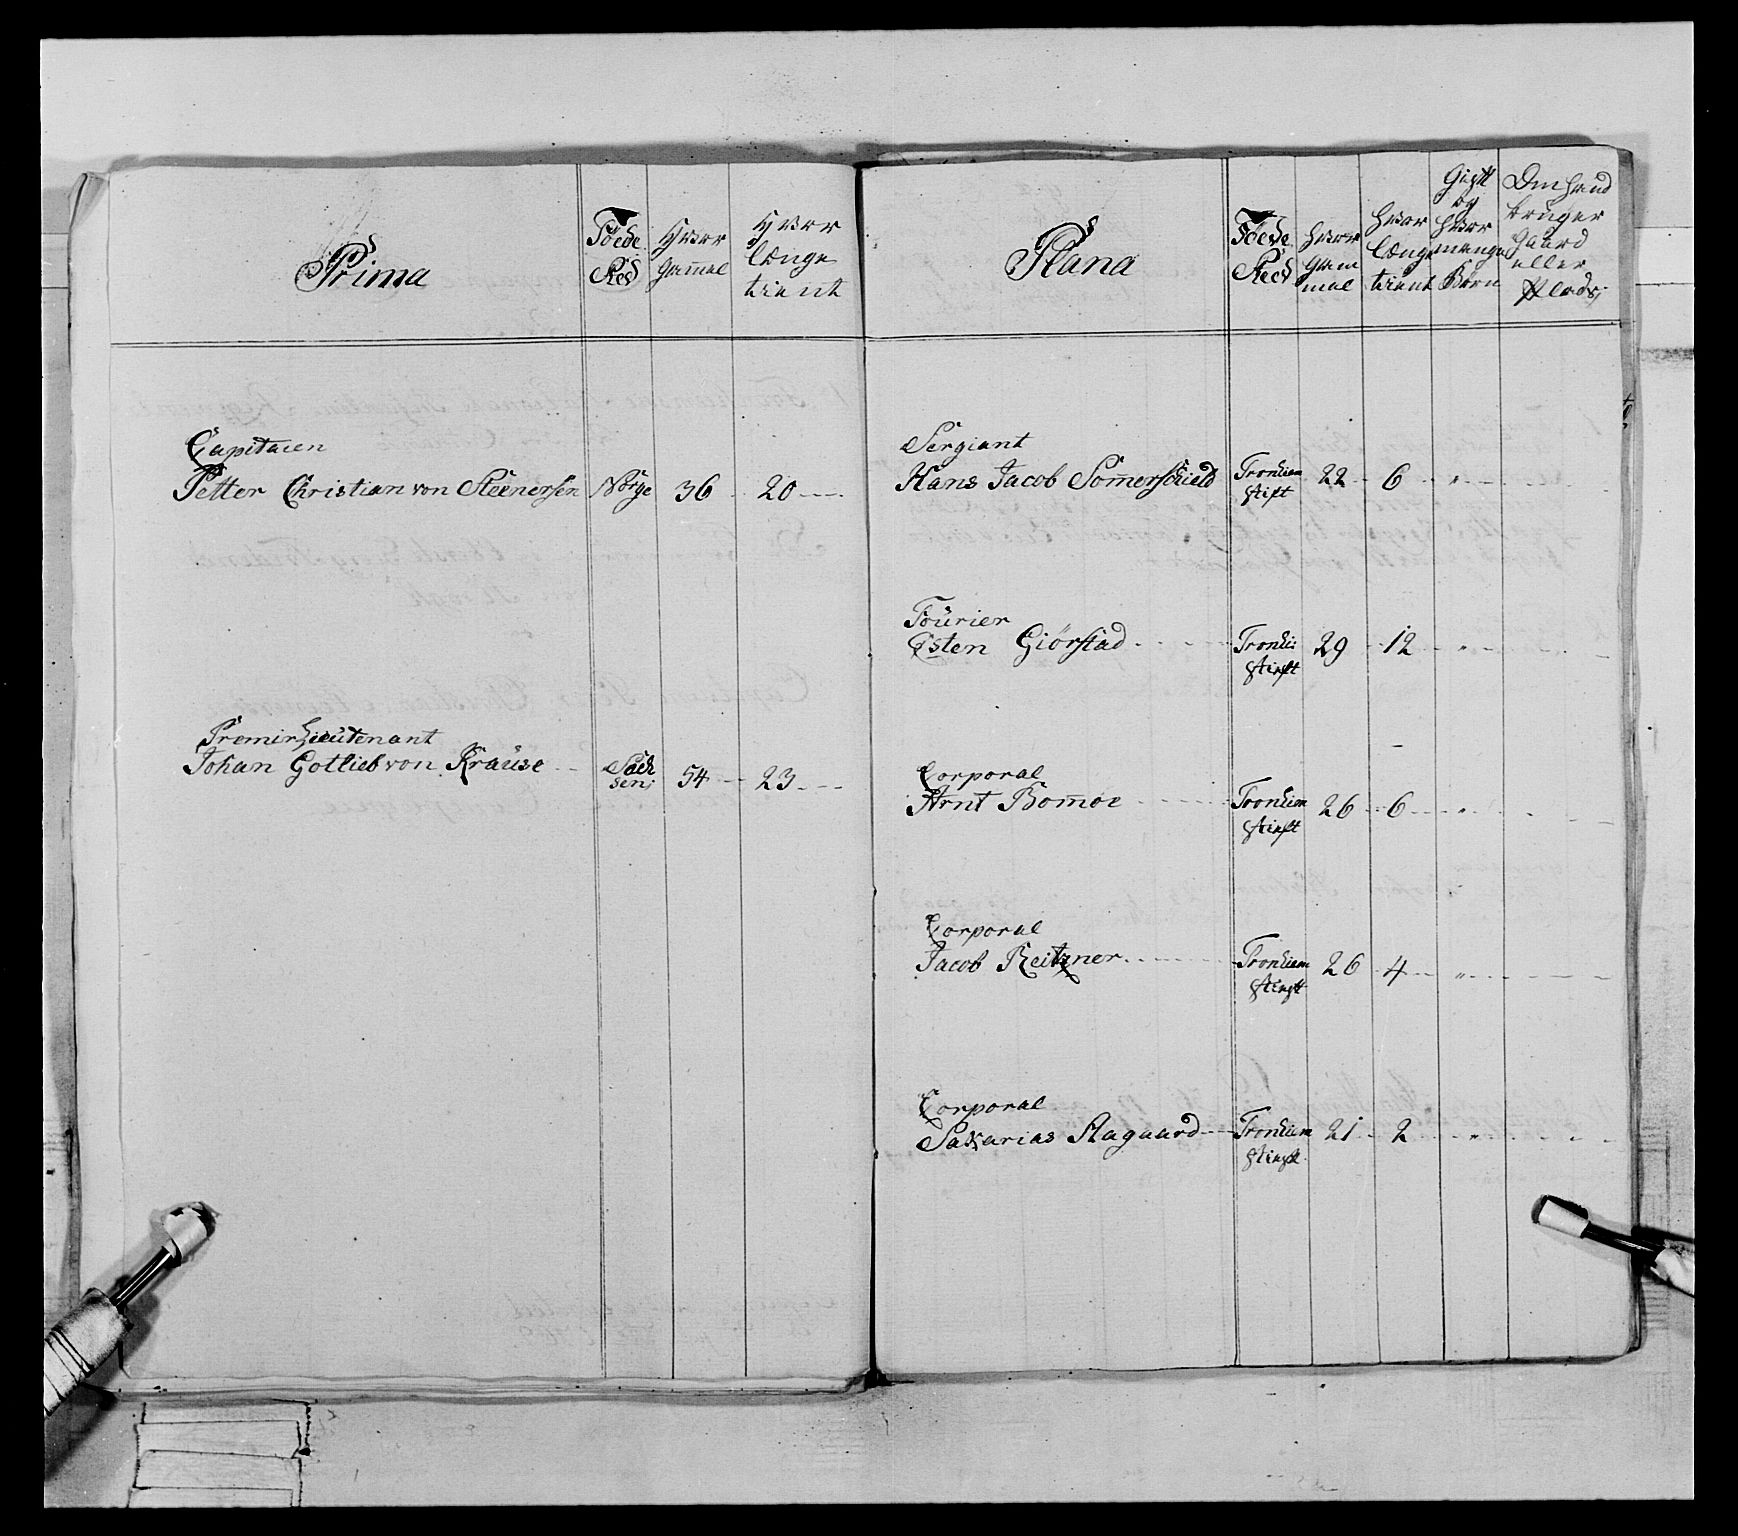 Prima
Föede Sted
Hvor Gam̄el
Hvor længe tient
Capitaien
Petter Christian von Steenersen Norge 36 20
Premir Lieutenant
Johan Gottlieb von Krause Sachsen 54 23
Plana
Föede Sted
Hvor Gammel
Hvor længe tient
Gift og hvor mange Börn
Om hand bruger Gaard eller Plads
Sergiant
Hans Jacob Som̄erschield Tronhiem Stift 22 6 "
Fourier
Esten Giörstad Tronhi: Stift 29 12 "
Corporal
Arnt Bom̄oe Tronhiem Stift 26 6 "
Corporal
Jacob Reitzner Tronhiem Stift 26 4 "
Corporal
Sakarias Aagaard Tronhiem Stift 21 2 "